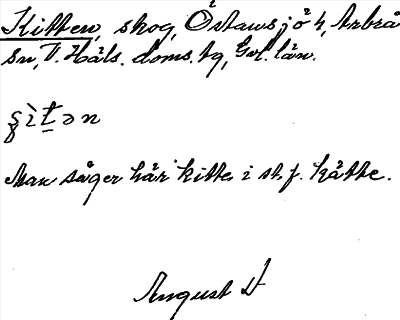 Kitten, skog, Östansjö 4, Arbrå
sn, V. Häls. doms. bg, Gvl. län.
ʂìt̠ən
Man säger här kitte i st. f. kätte.
August